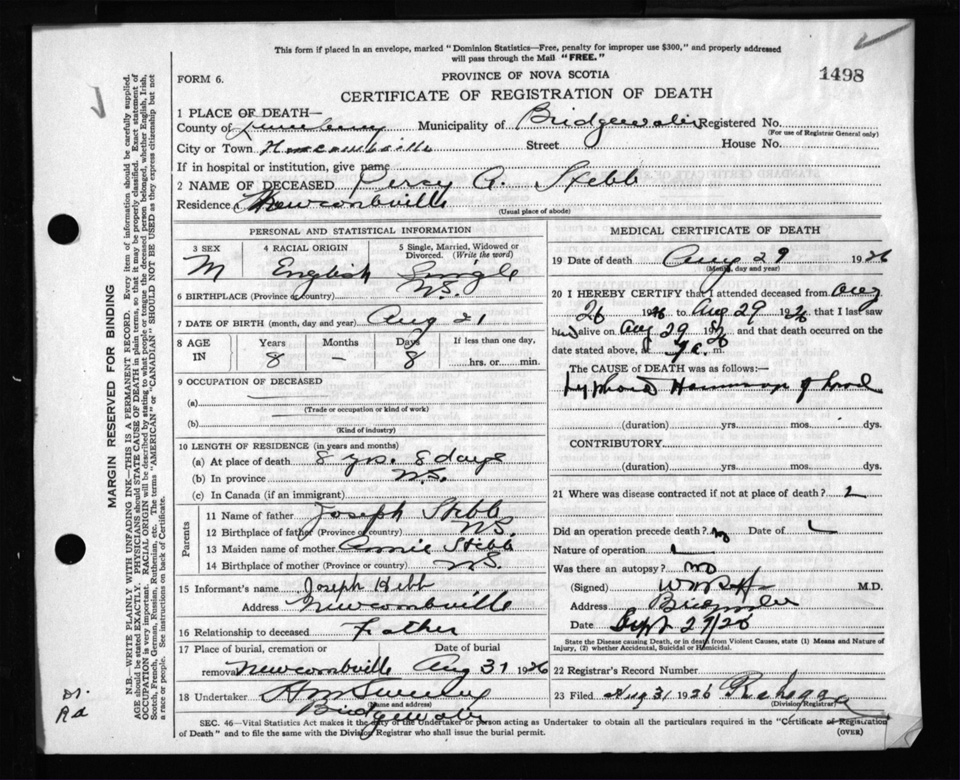 This form if placed in an envelope, marked "Dominion Statistics—Free, penalty for improper use $300," and properly addressed
will pass through the Mail "FREE."
FORM 6.
PROVINCE OF NOVA SCOTIA
1498
CERTIFICATE OF REGISTRATION OF DEATH
MARGIN RESERVED FOR BINDING
N.B.—WRITE PLAINLY WITH UNFADING INK—THIS IS A PERMANENT RECORD. Every item of information should be carefully supplied.
AGE should be stated EXACTLY. PHYSICIANS should STATE CAUSE OF DEATH in plain terms, so that it may be properly classified. Exact statement of
OCCUPATION is very important. RACIAL ORIGIN will be described by stating to what people or tongue the deceased person belonged, whether English, Irish,
Scotch, French, German, Russian, Ruthenian, etc. The terms "AMERICAN" or "CANADIAN" SHOULD NOT BE USED as they express citizenship but not
a race or people. See instructions on back of Certificate.
1 PLACE OF DEATH—
County of Lunenburg Municipality of Bridgewater Registered No.
(For use of Registrar General only)
City or Town Newcombville Street House No.
If in hospital or institution, give name
2 NAME OF DECEASED Percy A. Hebb
Residence Newcombville
(Usual place of abode)
PERSONAL AND STATISTICAL INFORMATION
3 SEX 4 RACIAL ORIGIN 5 Single, Married, Widowed or Divorced. (Write the word)
M English Single
6 BIRTHPLACE (Province or country) N.S.
7 DATE OF BIRTH (month, day and year) Aug 21
8 AGE IN Years Months Days If less than one day,
8 – 8 hrs. or min.
9 OCCUPATION OF DECEASED
(a)
(Trade or occupation or kind of work)
(b)
(Kind of industry)
10 LENGTH OF RESIDENCE (in years and months)
(a) At place of death 8 yrs. 8 days
(b) In province N.S.
(c) In Canada (if an immigrant)
Parents
11 Name of father Joseph Hebb
12 Birthplace of father (Province or country) NS
13 Maiden name of mother Annie Hebb
14 Birthplace of mother (Province or country) N.S.
15 Informant's name Joseph Hebb
Address Newcombville
16 Relationship to deceased Father
17 Place of burial, cremation or removal Date of burial
Newcombville Aug 31 1926
18 Undertaker
(Name and address)
Bridgewater
MEDICAL CERTIFICATE OF DEATH
19 Date of death Aug 29 1926
(Month, day and year)
20 I HEREBY CERTIFY that I attended deceased from Aug
26 1926 to Aug 29 1926 that I last saw
him alive on Aug 29 1926 and that death occurred on
date stated above, at 9 a. m.
The CAUSE OF DEATH was as follows:—
Typhoid Hemorrage of bowel
(duration) yrs. mos. dys.
CONTRIBUTORY
(duration) yrs. mos. dys.
21 Where was disease contracted if not at place of death?
Did an operation precede death? no Date of
Nature of operation
Was there an autopsy? no
(Signed) M.D.
Address Bridgewater
Date Sept 29/26
State the Disease causing Death, or in death from Violent Causes, state (1) Means and Nature of
Injury, (2) whether Accidental, Suicidal or Homicidal.
22 Registrar's Record Number
23 Filed Aug 31 1926
(Division Registrar)
SEC. 46—Vital Statistics Act makes it the duty of the Undertaker or person acting as Undertaker to obtain all the particulars required in the "Certificate of Registration
of Death" and to file the same with the Division Registrar who shall issue the burial permit.
(OVER)